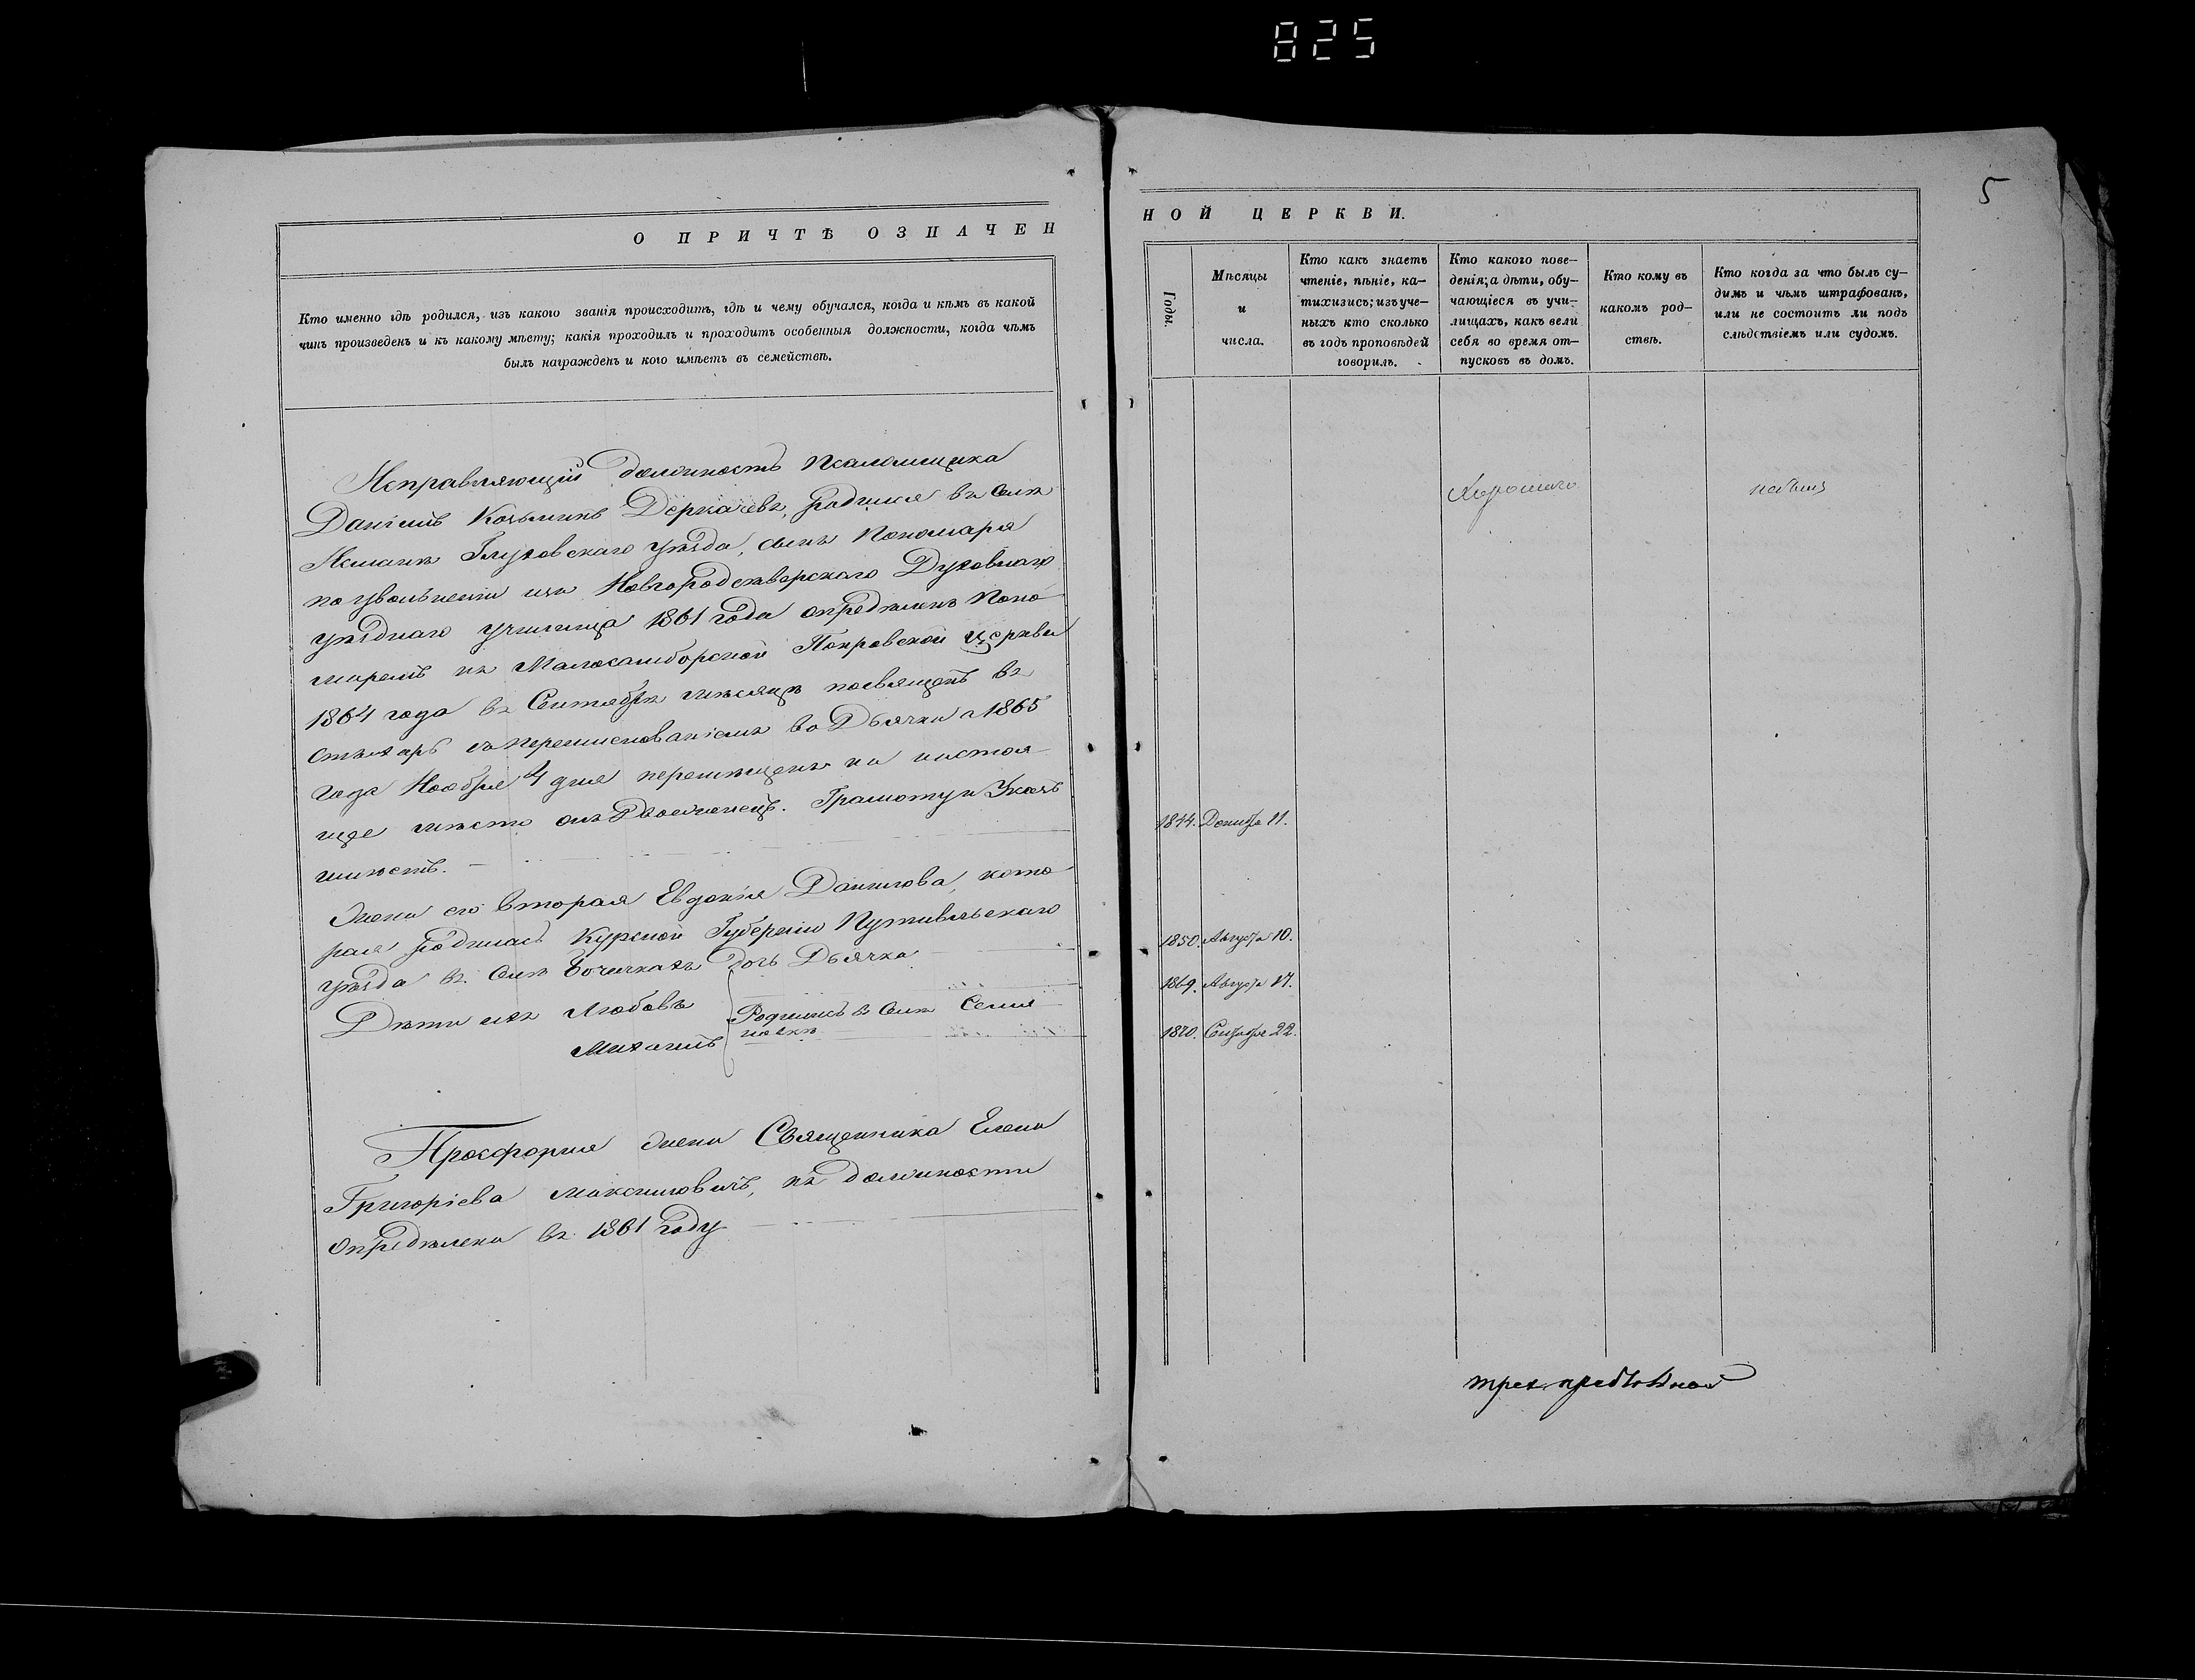 825
5
О ПРИЧТѢ ОЗНАЧЕН
НОЙ ЦЕРКВИ.
Кто именно гдѣ родился, изъ какого званія происходитъ, гдѣ и чему обучался, когда и кѣмъ въ какой
чинъ произведенъ и къ какому мѣсту; какія проходилъ и проходитъ особенныя должности, когда чѣмъ
былъ награжденъ и кого имѣетъ въ семействѣ.
Исправляющій должность псаломщика
Даніилъ Козьминъ Деркачевъ, родился въ селѣ
Глуховскаго уѣзда, сынъ Пономаря
по увольненіи изъ Новгородсѣверскаго Духовнаго
уѣзднаго училища 1861 года опредѣленъ Поно
маремъ къ Малосамборской Покровской церкви
1864 года въ Сентябрѣ мѣсяцѣ посвященъ въ
стихарь съ переименованіемъ во Дьячки а 1865
года Ноября 4 дня перемѣщенъ на настоя
ще мѣсто Грамоту и Указъ
имѣетъ.
Жена его вторая Евдокія Данилова, кото
рая родилась Курской Губерніи Путивльскаго
уѣзда въ селѣ Бочечкахъ дочь Дьячка
Дѣти ихъ Любовь
Михаилъ
Родились въ селѣ Семя
новкѣ
Просфорня жена Священника Елена
Григоріева Максимовичъ, къ должности
Опредѣлена въ 1861 году
Годы.
Мѣсяцы
и
числа.
Кто какъ знаетъ
чтеніе, пѣніе, ка-
тихизисъ; изъ уче-
ныхъ кто сколько
въ годъ проповѣдей
говорилъ.
Кто какого пове-
денія; а дѣти, обу-
чающіеся въ учи-
лищахъ, какъ вели
себя во время от-
пусковъ въ домъ.
Кто кому въ
какомъ род-
ствѣ.
Кто когда за что былъ су-
димъ и чѣмъ штрафованъ,
или не состоитъ ли подъ
слѣдствіемъ или судомъ.
Хорошаго
небылъ
1844. Декабря 11.
1850. Августа 10.
1869. Августа 17.
1870. Сентября 22.